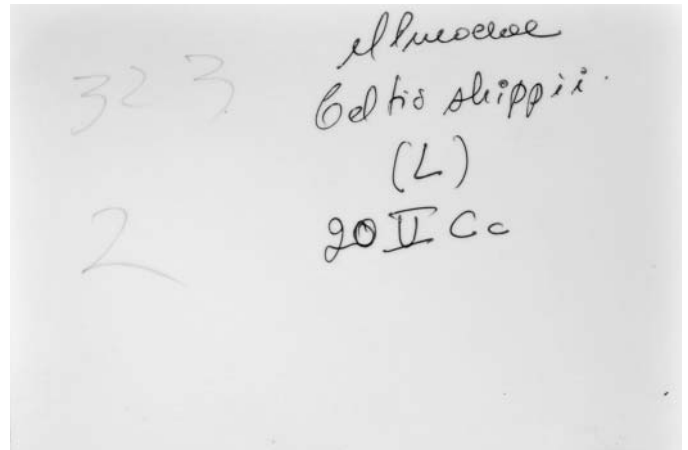 323
Ulmaceae
Celtis shippii.
(L)
2
20 II Cc